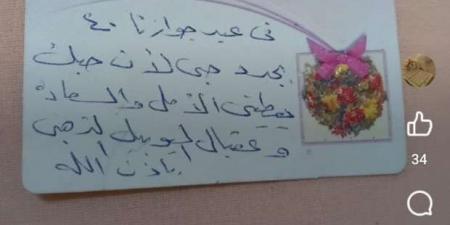 فى عيد جوازنا ٤٠
بجدد حبى لأن حبك
يعطينى الأمل والسعادة
وعقبال اليوبيل الذهبى
بإذن الله
34